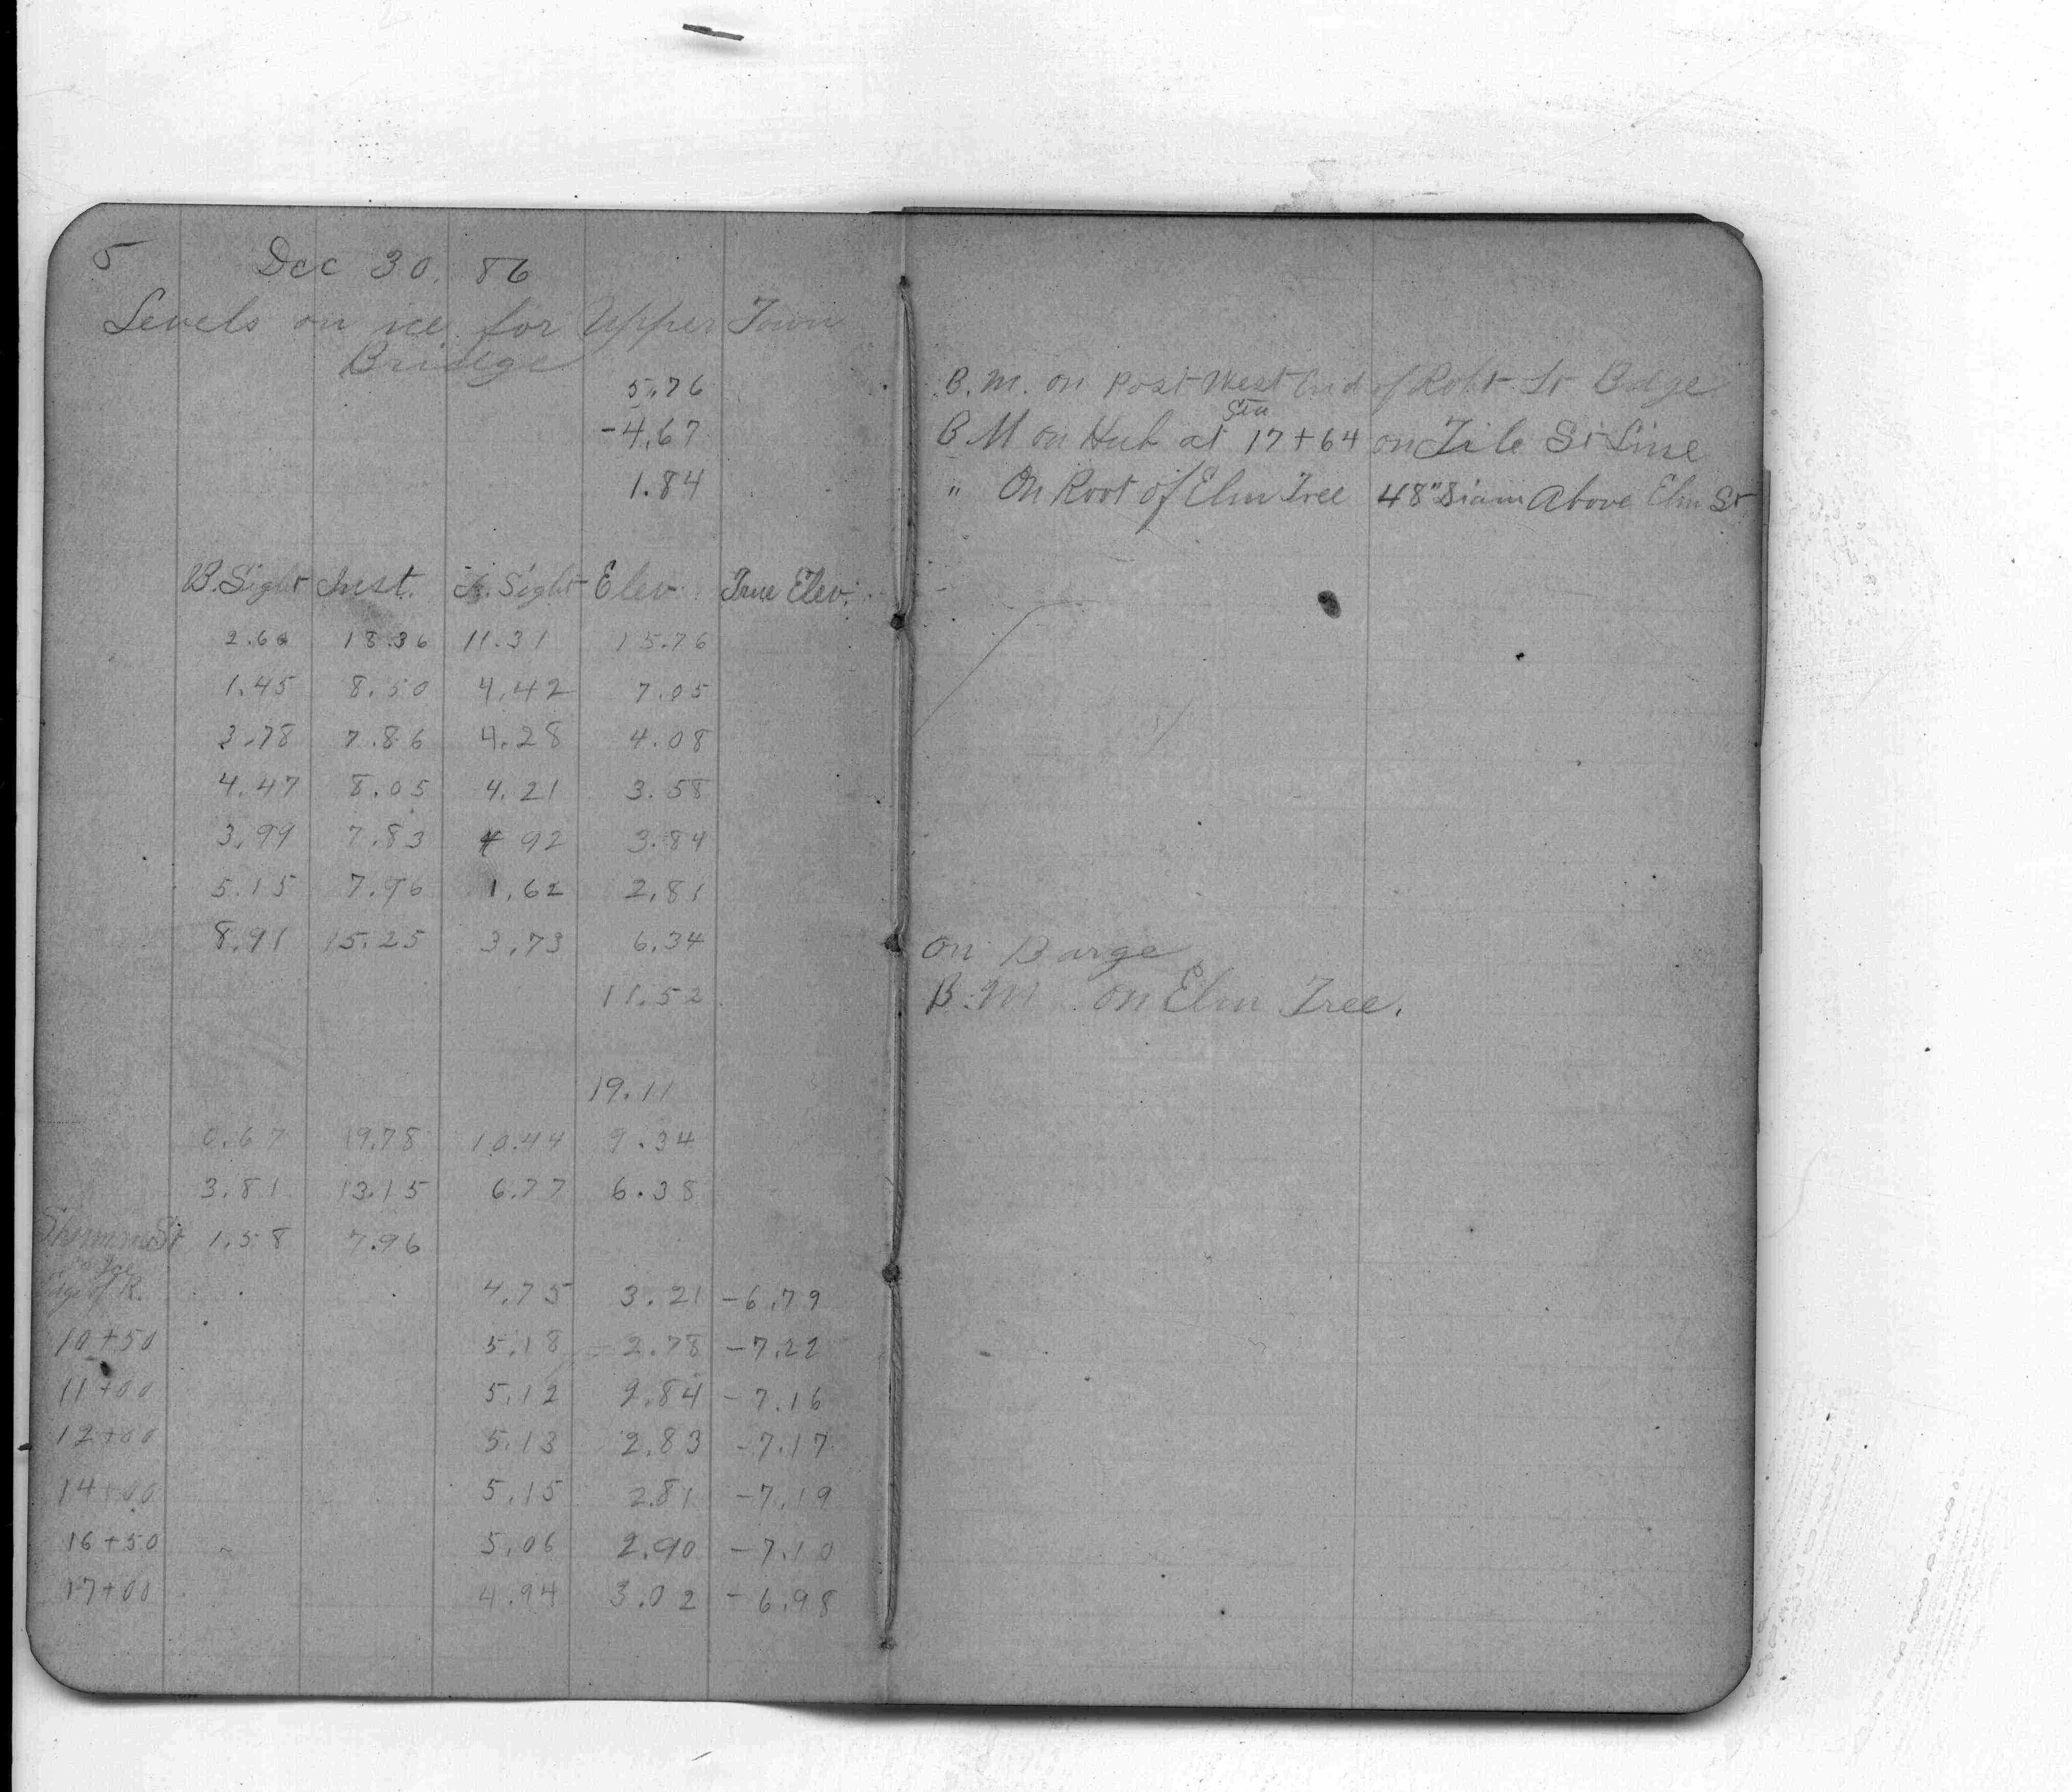 5 Dec 30. 86
Levels on ice for Upper Town
Bridge
5.76 B.M. on Post West End of Robt St Bdge
-4.67 B M on Hub at Sta 17+64 on St Line
1.84 " On Root of Elm Tree 48" Diam Above Elm St
B.Sight Inst. F.Sight Elev. True Elev.
2.60 18.36 11.31 15.76
1.45 8.50 4.42 7.05
3.78 7.86 4.28 4.08
4.47 8.05 4.21 3.58
3.99 7.83 4 92 3.84
5.15 7.96 1.62 2.81
8.91 15.25 3.73 6.34 On Barge
11.52 B.M on Elm Tree.
19.11
0.67 19.78 10.44 9.34
3.81 13.15 6.77 6.38
St 1.58 7.96
Ice
Edge of R. 4.75 3.21 -6.79
10+50 5.18 2.78 -7.22
11+00 5.12 2.84 -7.16
12+00 5.13 2.83 -7.17
14+00 5.15 2.81 -7.19
16+50 5.06 2.90 -7.10
17+00 4.94 3.02 -6.98